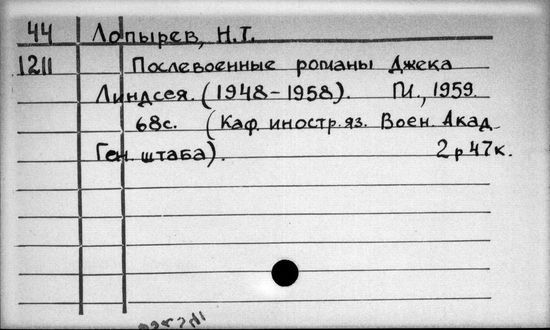 44 Лопырев, Н.Т.
1211 Послевоенные романы Джека
Линдсея. (1948-1958). М., 1959.
68с. (Каф. иностр. яз. Воен. Акад.
Ген. штаба). 2р 47к.